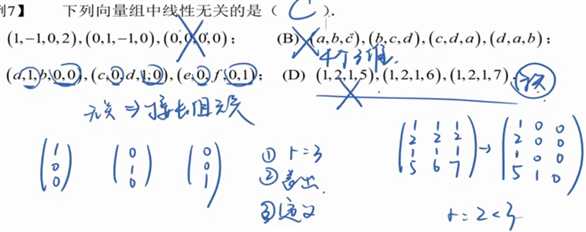 例7】 下列向量组中线性无关的是( C ).
(1,-1,0,2),(0,1,-1,0),(0,0,0,0); (B) (a,b,c),(b,c,d),(c,d,a),(d,a,b);
4个3维
(a,1,b,0,0),(c,0,d,1,0),(e,0,f,0,1); (D) (1,2,1,5),(1,2,1,6),(1,2,1,7)
无关 ⇒ 接长组无关
(1 0 0) (0 1 0) (0 0 1)
① r=3
②
③定义
(1 1 1
2 2 2
1 1 1
5 6 7) → (1 0 0
2 0 0
1 0 0
5 1 0)
r=2<3